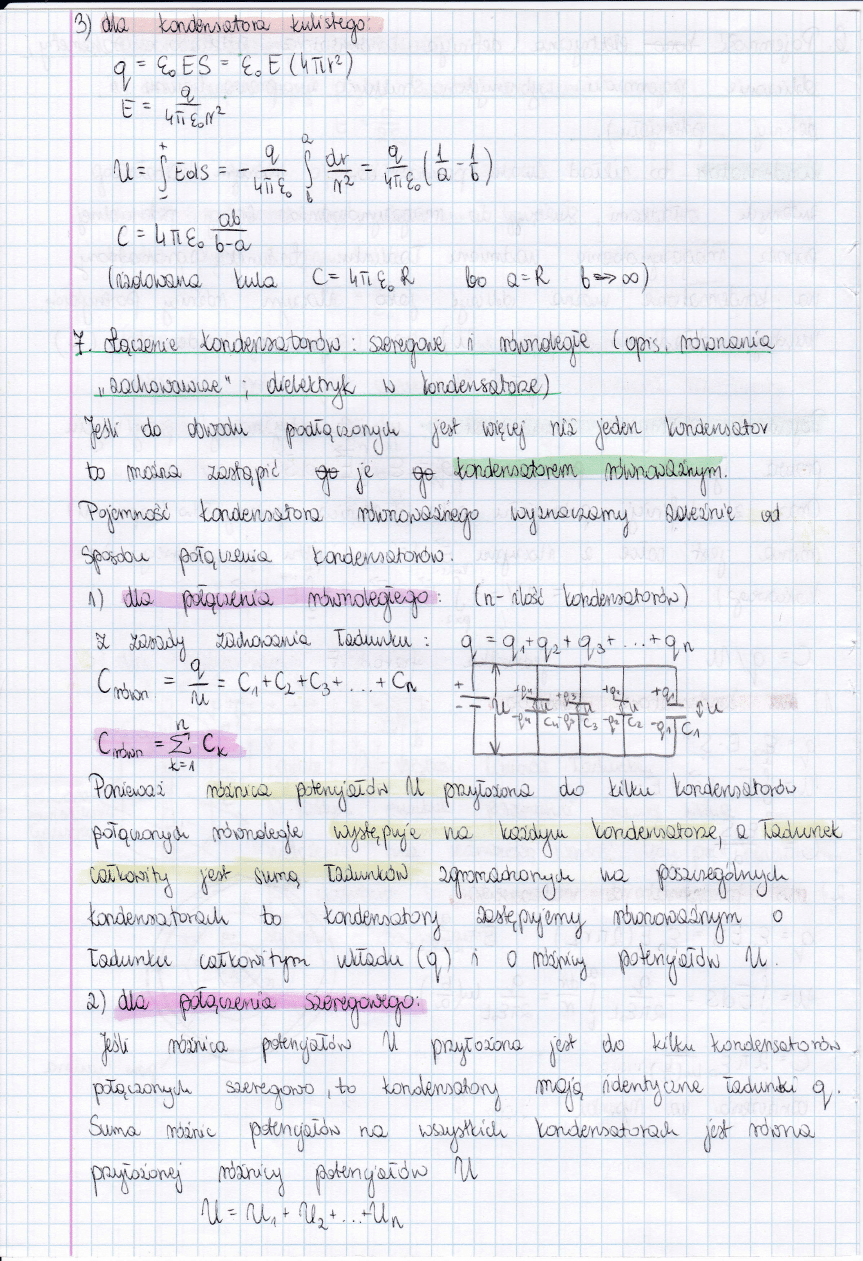 3) dla kondensatora kulistego:
q = ε₀ES = ε₀E(4πr²)
E = q/(4πε₀r²)
U = ∫₋⁺ Eds = - q/(4πε₀) ∫_b^a dr/r² = q/(4πε₀) (1/a - 1/b)
C = 4πε₀ ab/(b-a)
(izolowana kula C = 4πε₀R bo a=R b→∞)
7. Łączenie kondensatorów: szeregowe i równoległe (opis, równania
„zachowawcze"; dielektryk w kondensatorze)
Jeśli do obwodu podłączonych jest więcej niż jeden kondensator
to można zastąpić go je go kondensatorem równoważnym.
Pojemność kondensatora równoważnego wyznaczamy zależnie od
sposobu połączenia kondensatorów.
1) dla połączenia równoległego: (n - ilość kondensatorów)
z zasady zachowania ładunku: q = q₁+q₂+q₃+...+qₙ
C równ = q/U = C₁+C₂+C₃+...+Cₙ
+ - U +q₄ -q₄ U C₄ +q₃ -q₃ U C₃ +q₂ -q₂ U C₂ +q₁ -q₁ C₁ U
C równ = Σ_{k=1}^{n} C_k
Ponieważ różnica potencjałów U przyłożona do kilku kondensatorów
połączonych równolegle występuje na każdym kondensatorze, a ładunek
całkowity jest sumą ładunków zgromadzonych na poszczególnych
kondensatorach to kondensatory zastępujemy równoważnym o
ładunku całkowitym układu (q) i o różnicy potencjałów U.
2) dla połączenia szeregowego:
Jeśli różnica potencjałów U przyłożona jest do kilku kondensatorów
połączonych szeregowo, to kondensatory mają identyczne ładunki q.
Suma różnic potencjałów na wszystkich kondensatorach jest równa
przyłożonej różnicy potencjałów U
U = U₁+U₂+...+Uₙ